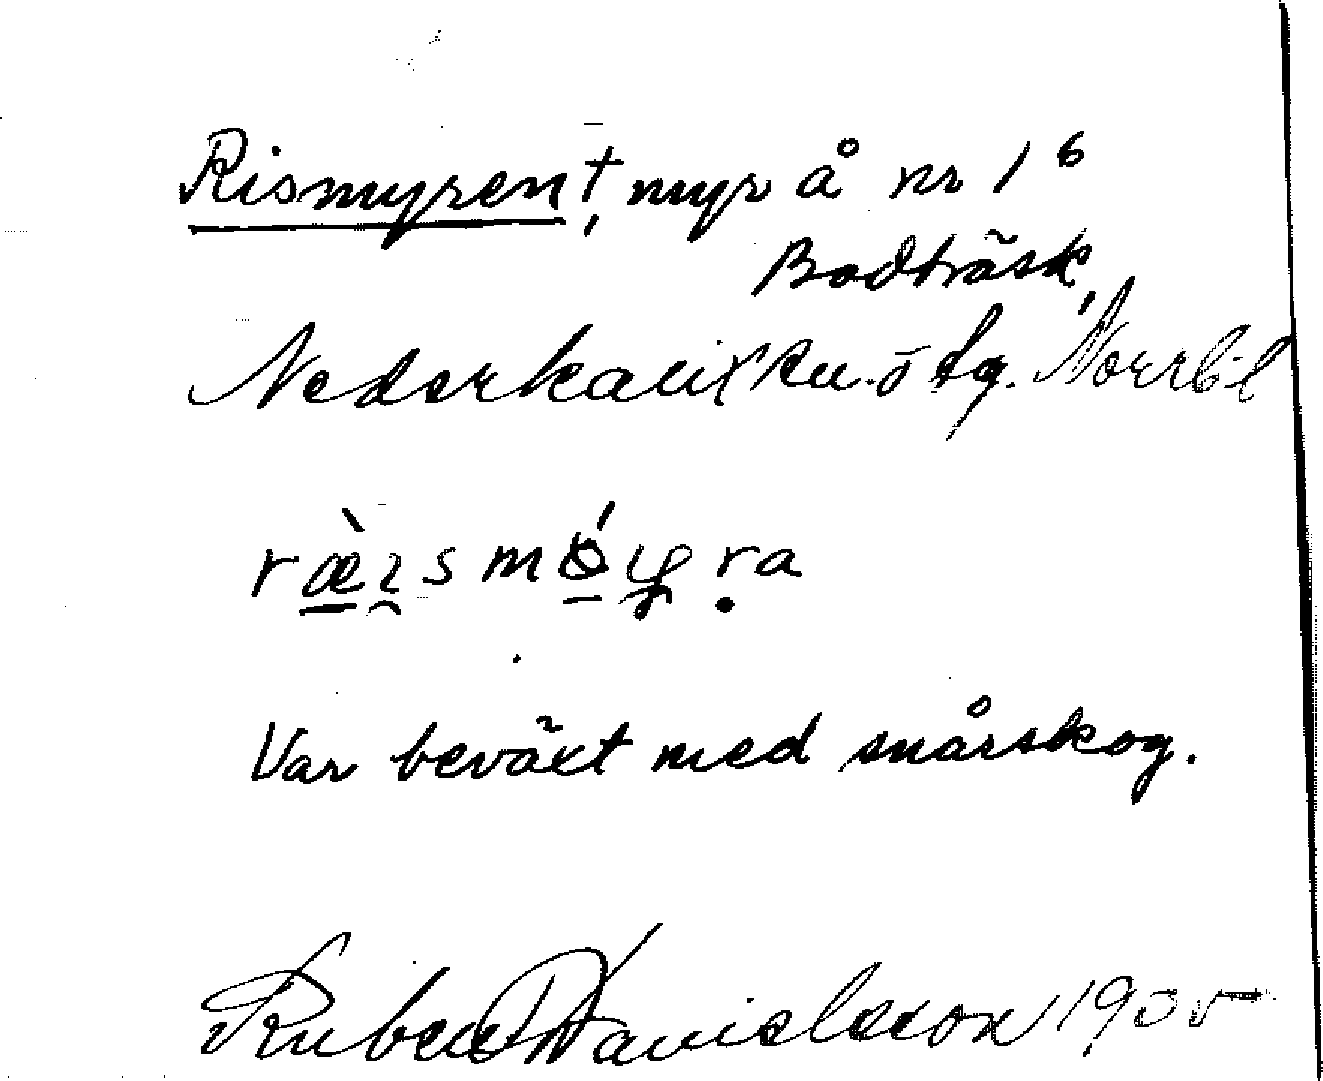 Rismyren †, myr å nr 1⁶
Bodträsk,
Nederkalix sn. o tg. Norrb. l
ræ̀ı̯smóyra
Var beväxt med snårskog.
Ruben Danielsson 1935